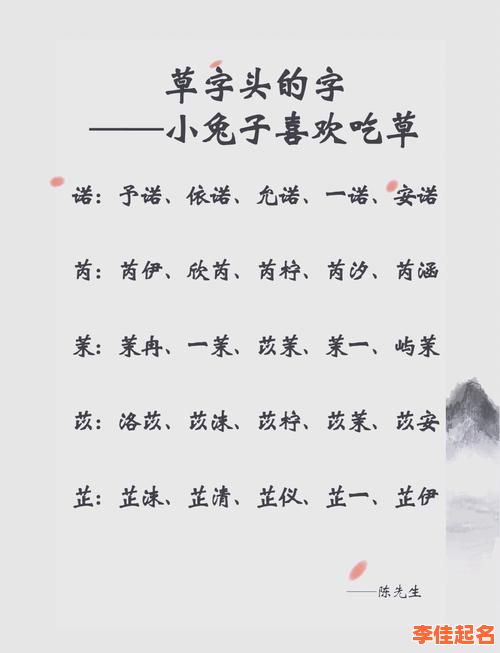 草字头的字
——小兔子喜欢吃草
诺：予诺、依诺、允诺、一诺、安诺
芮：芮伊、欣芮、芮柠、芮汐、芮涵
茉：茉冉、一茉、苡茉、茉一、屿茉
苡：洛苡、苡沫、苡柠、苡茉、苡安
芷：芷沫、芷清、芷仪、芷一、芷伊
——陈先生
李佳起名